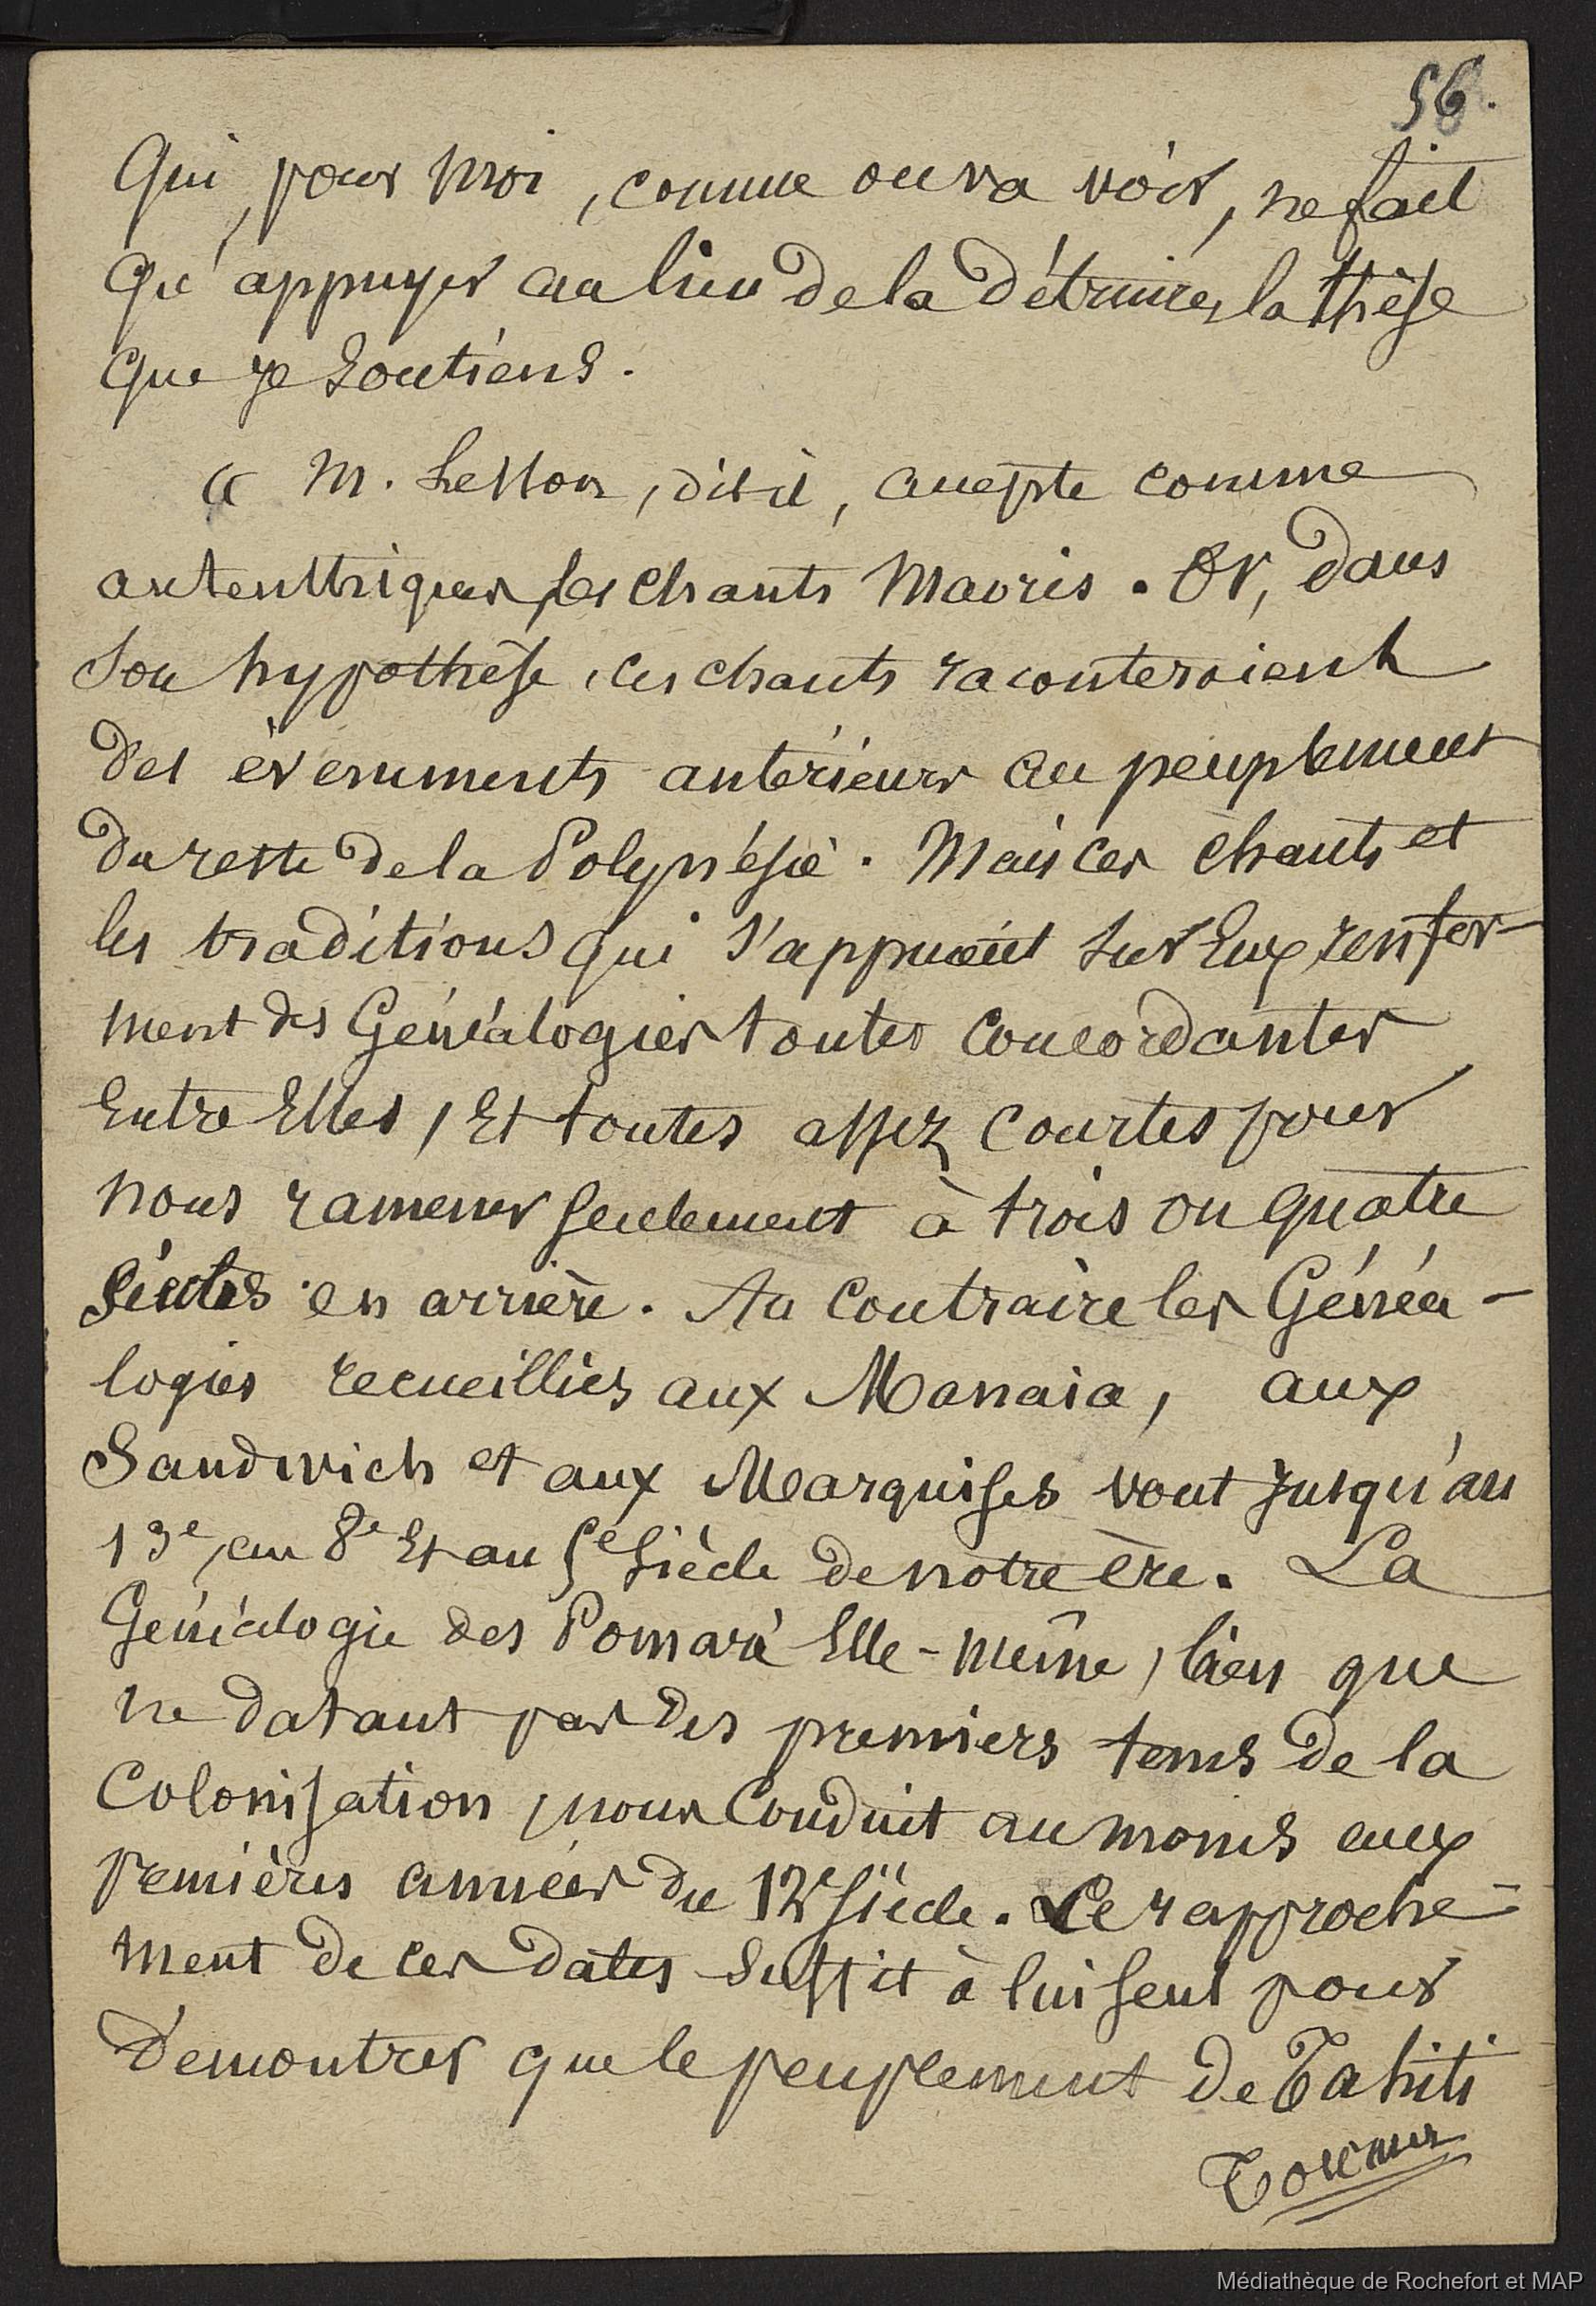 56.
Qui, pour moi, comme on va voir, ne fait
qu'appuyer au lieu de la détruire, la thèse
que je soutiens.
« M. Lesson, dit-il, accepte comme
autenthiques les chants Maoris. Or, dans
son hypothèse, ces chants raconteraient
des évenements antérieurs au peuplement
du reste de la Polynésie. Mais ces chants et
les traditions qui s'appuient sur eux renfer-
ment des Généalogies toutes concordantes
entre elles, et toutes assez courtes pour
nous ramener seulement à trois ou quatre
siècles en arrière. Au contraire les Généa-
logies recueillies aux Manaia, aux
Sandwich et aux Marquises vont jusqu'au
13e, au 8e et au 5e siècle de notre ère. La
Généalogie des Pomaré elle-même, bien que
ne datant pas des premiers tems de la
Colonisation, nous conduit au moins aux
premières années du 12e siècle. Ce rapproche-
ment de ces dates suffit à lui seul pour
démontrer que le peuplement de Tahiti
Tourner
Médiathèque de Rochefort et MAP